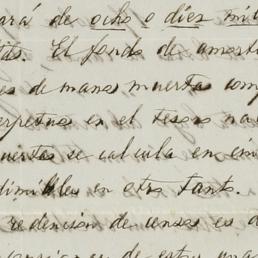 ará de ocho o diez mil
tas. El fondo de amorti
es de manos muertas com
erpetuos en el tesoro na
uertas se calcula en cin
dimibles en otro tanto.
redencion de censos es d
de estas